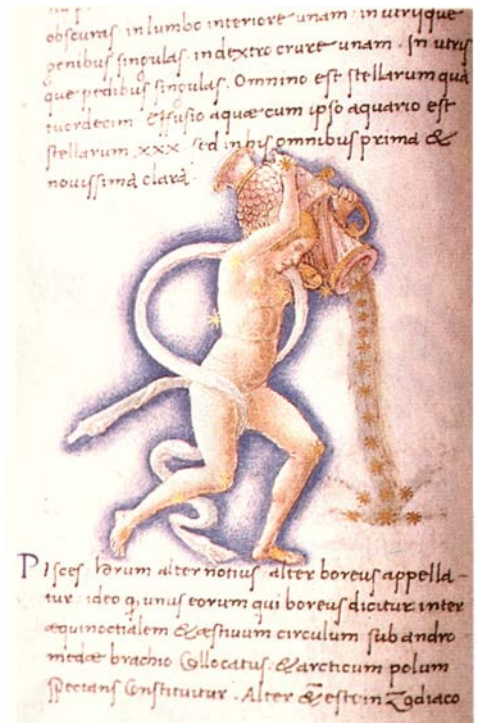 obscuras. in lumbo interiore unam. in utrisque
genibus singulas. in dextro crure unam. In utris
que pedibus singulas. Omnino est stellarum qua
tuordecim. Effusio aquæ cum ipso aquario est
stellarum .xxx. sed in his omnibus prima &
novissima clara.
Pisces. horum alter notius alter boreus appella-
tur. ideo q; unus eorum qui boreus dicitur inter
æquinoctialem & æstiuum circulum sub andro
medæ brachio Collocatus. & arcticum polum
spectans Constituitur. Alter est in Zodiaco